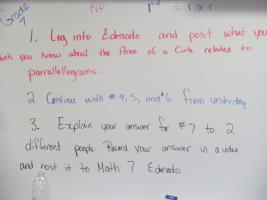 Grade 7
r² = r x r
1. Log into Edmodo and post what you
think you know about the Area of a Circle related to
parrallellograms.
2 Continue with #4, 5, and #6 from yesterday
3. Explain your answer for #7 to 2
different people. Record your answer in a video
and post it to Math 7 Edmodo